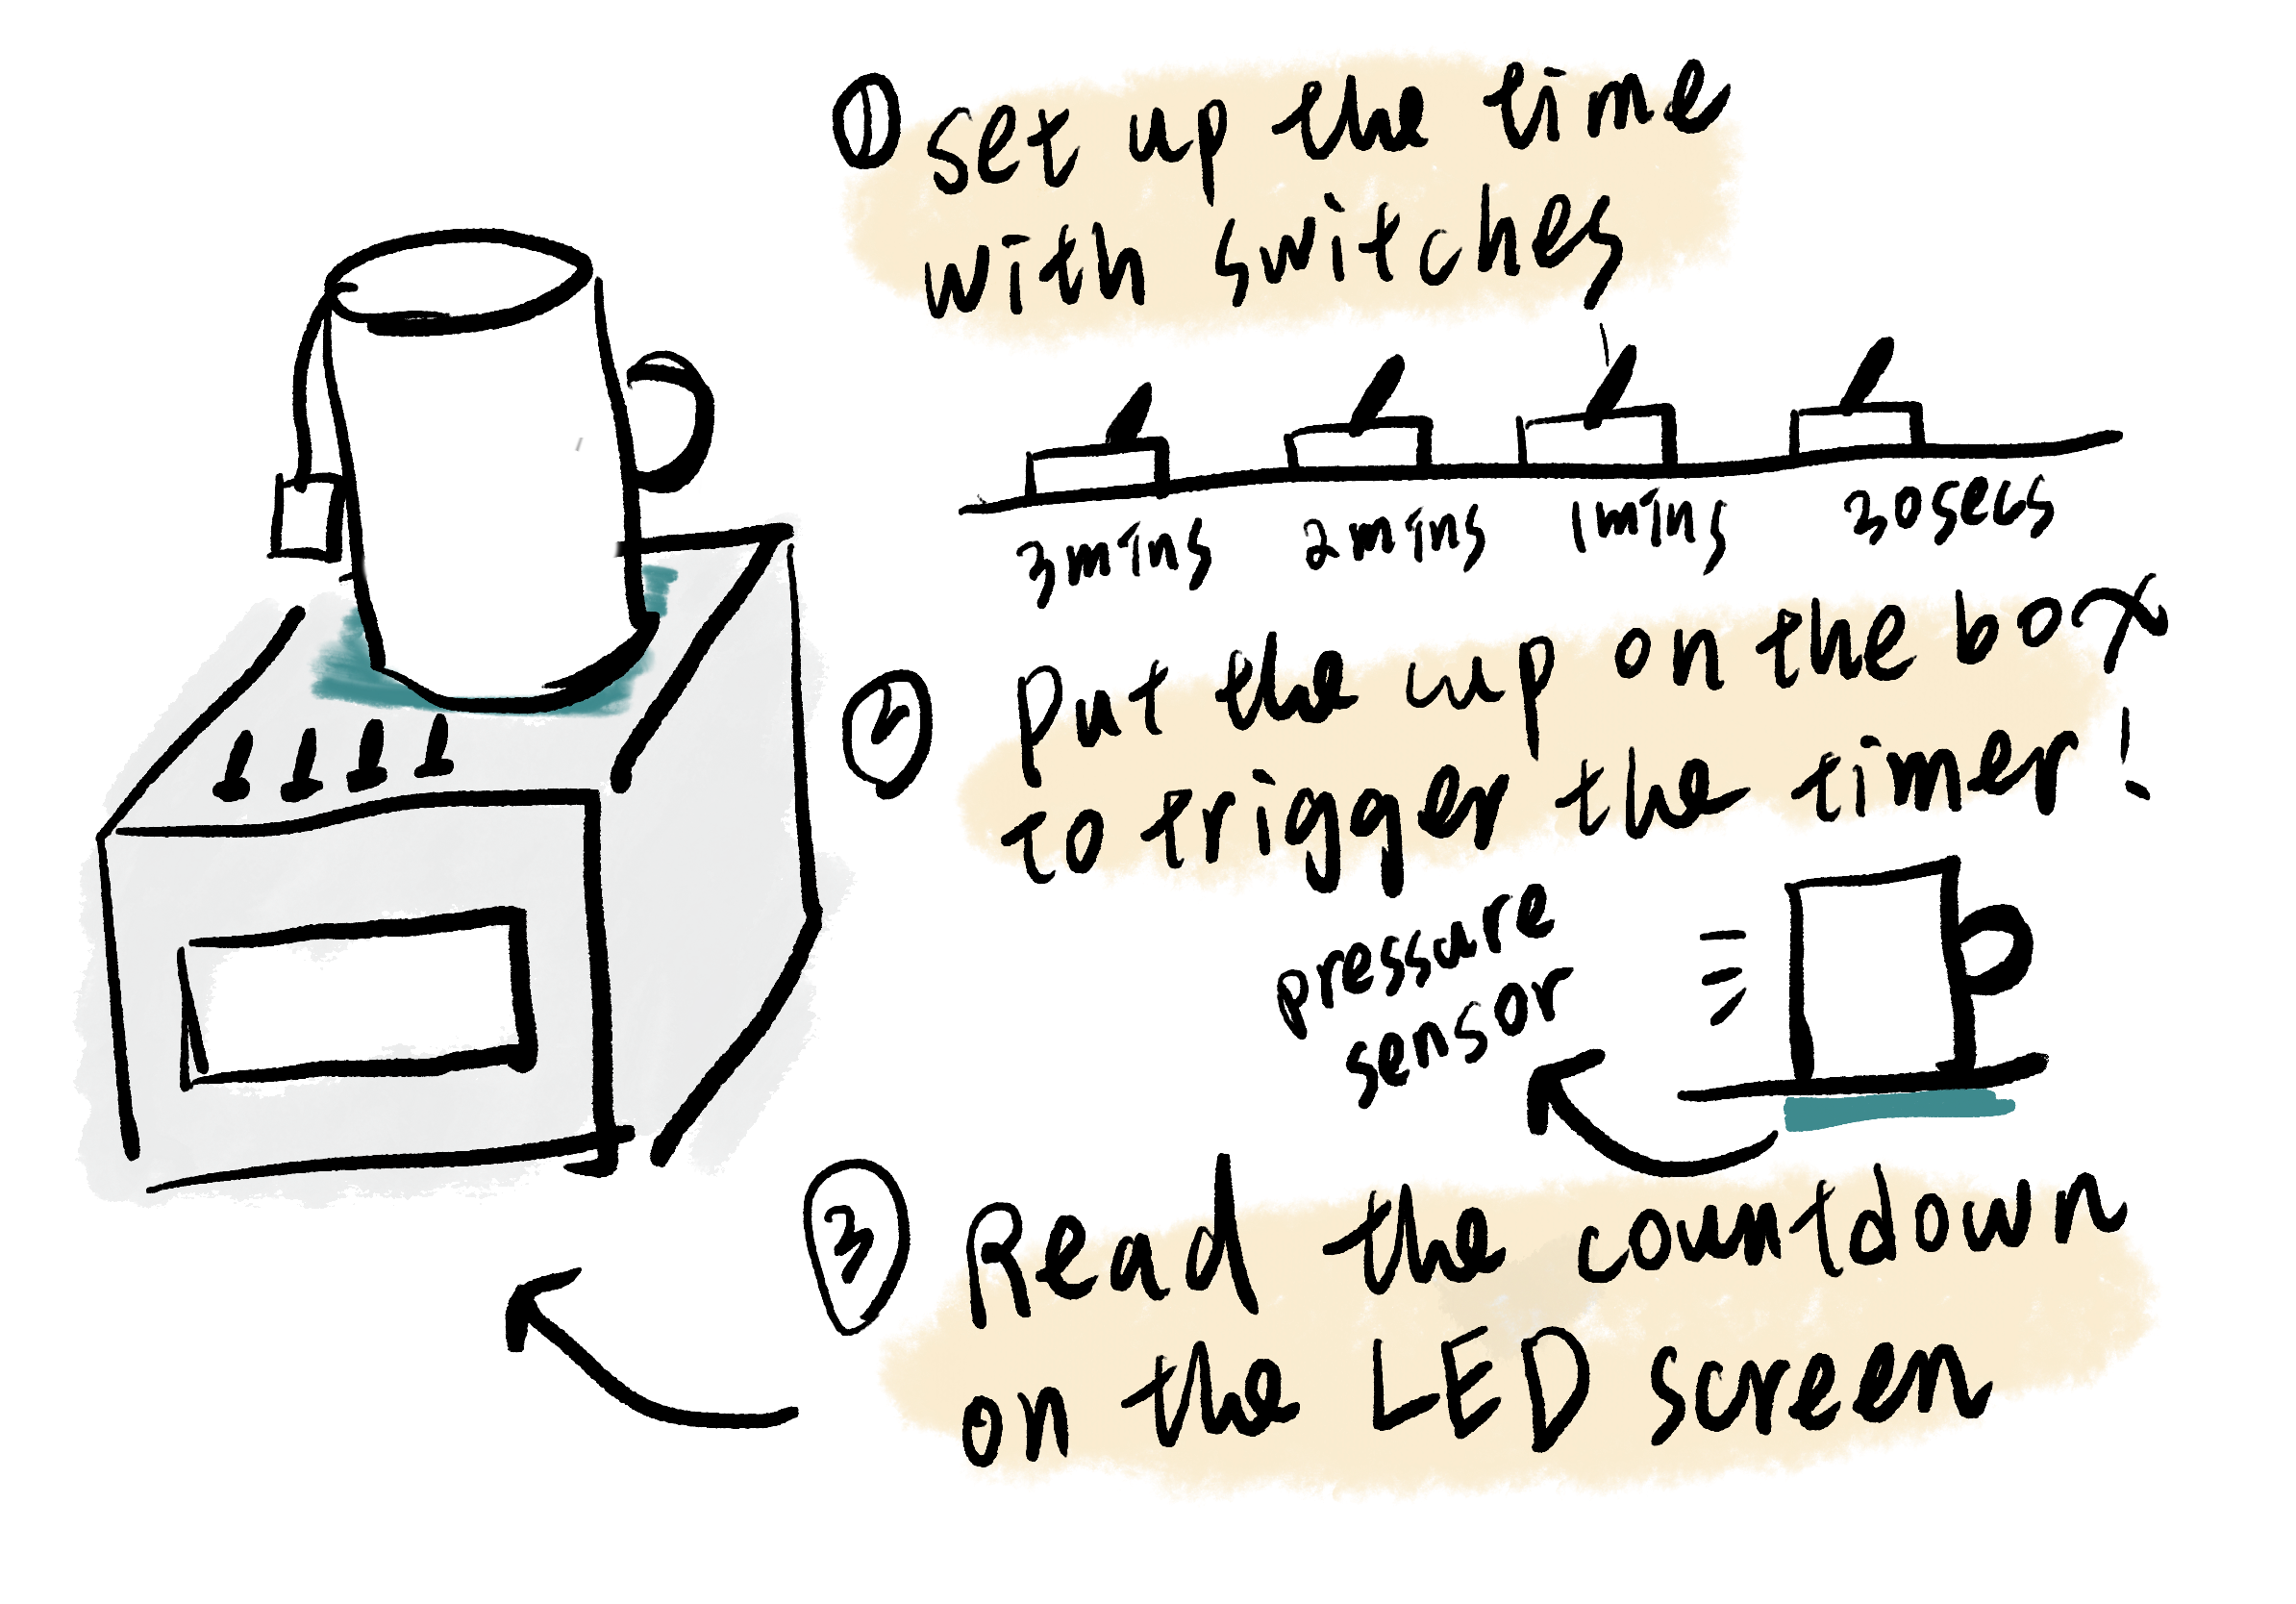 ① Set up the time
with switches
3mins 2mins 1mins 30secs
② Put the cup on the box
to trigger the timer!
pressure
sensor
③ Read the countdown
on the LED screen